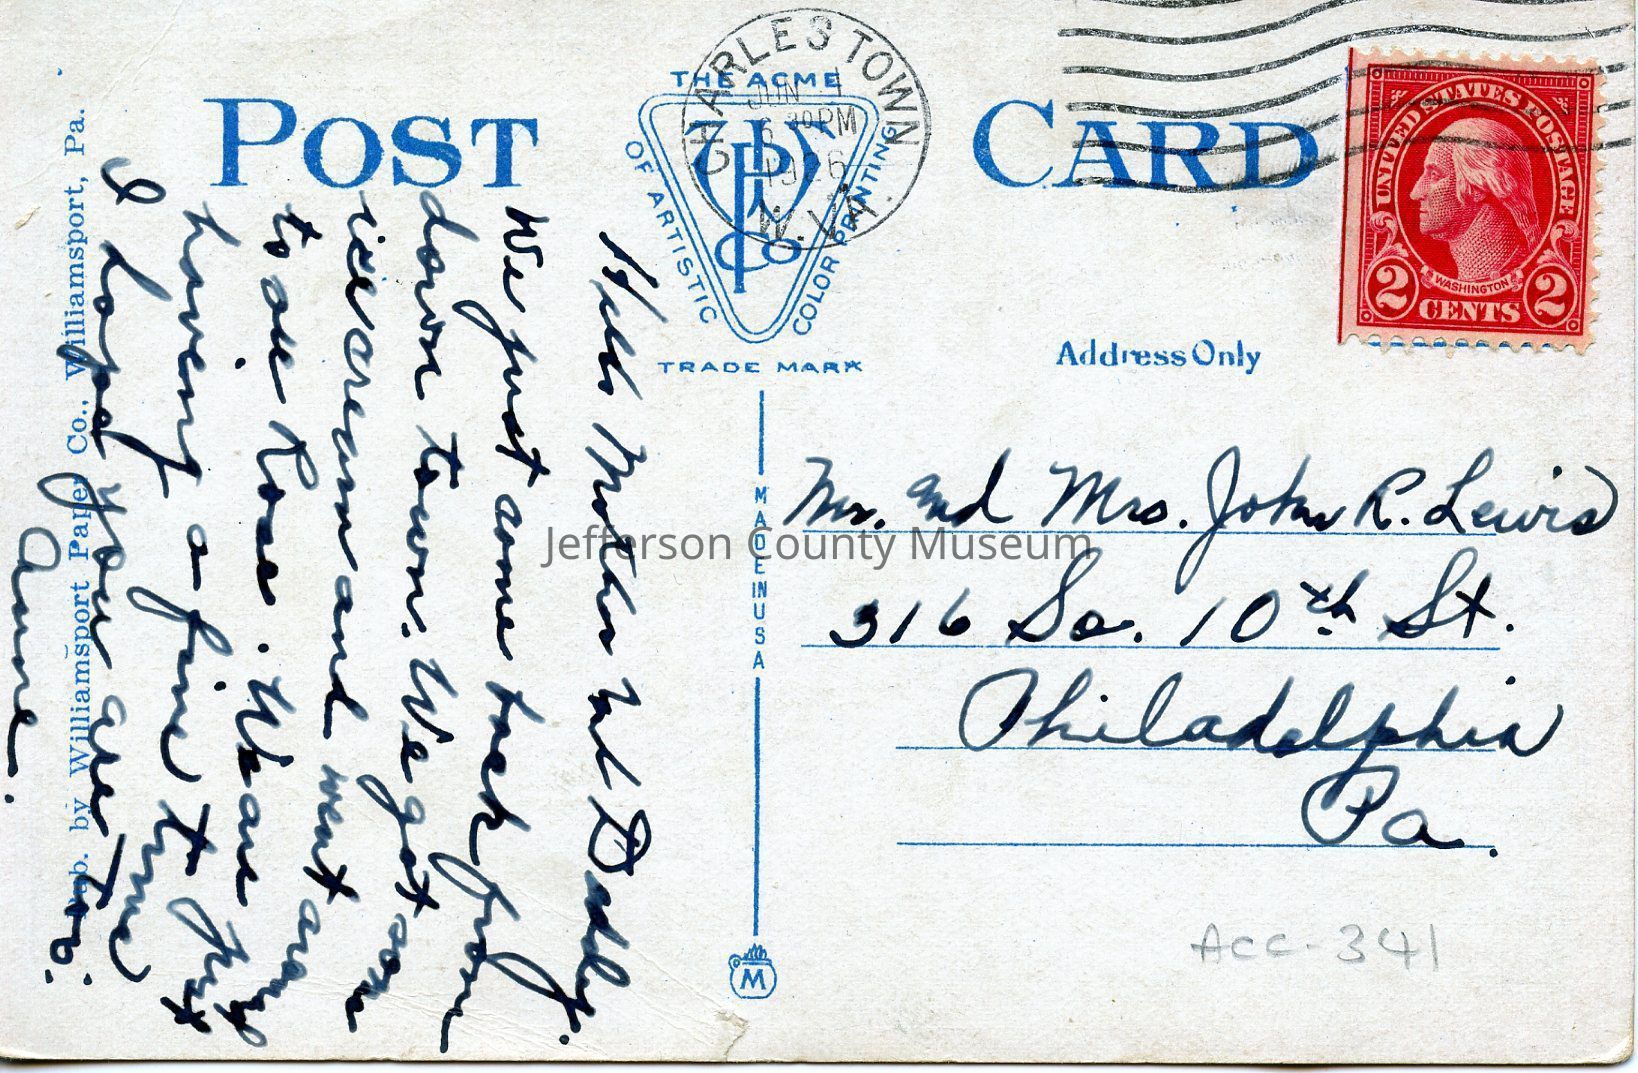 POST CARD
THE ACME
OF ARTISTIC
COLOR PRINTING
WP Co
TRADE MARK
CHARLES TOWN
JUN 1
6 30 PM
1926
W. VA.
UNITED STATES POSTAGE
WASHINGTON
2 CENTS 2
Address Only
Hello Mother and Daddy.
We just came back from
down town. We got some
ice cream and went
to see Rose. We are just
having a fine time
I hope you are too.
Anne.
Pub. by Williamsport Paper Co., Williamsport, Pa.
MADE IN USA
M
Mr. and Mrs. John R. Lewis
316 So. 10th St.
Philadelphia
Pa.
Acc-341
Jefferson County Museum